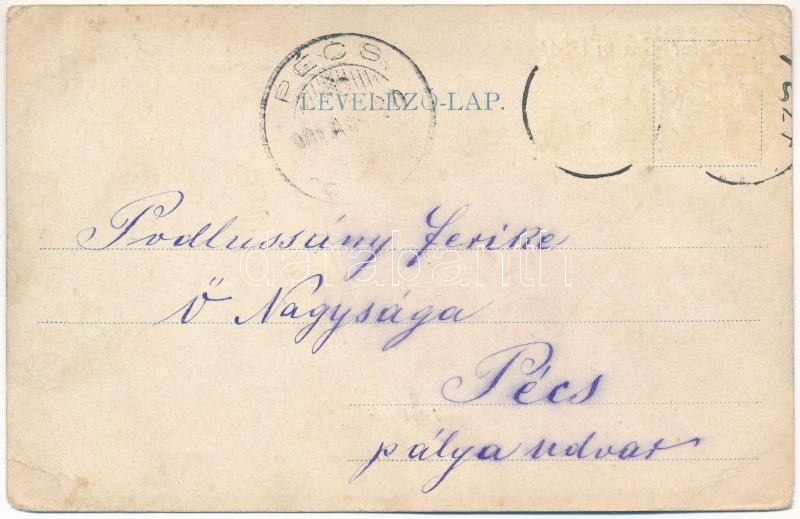 PÉCS
LEVELEZŐ-LAP.
Podlussány Ferike
Ő Nagysága
Pécs
pálya udvar
darabanth